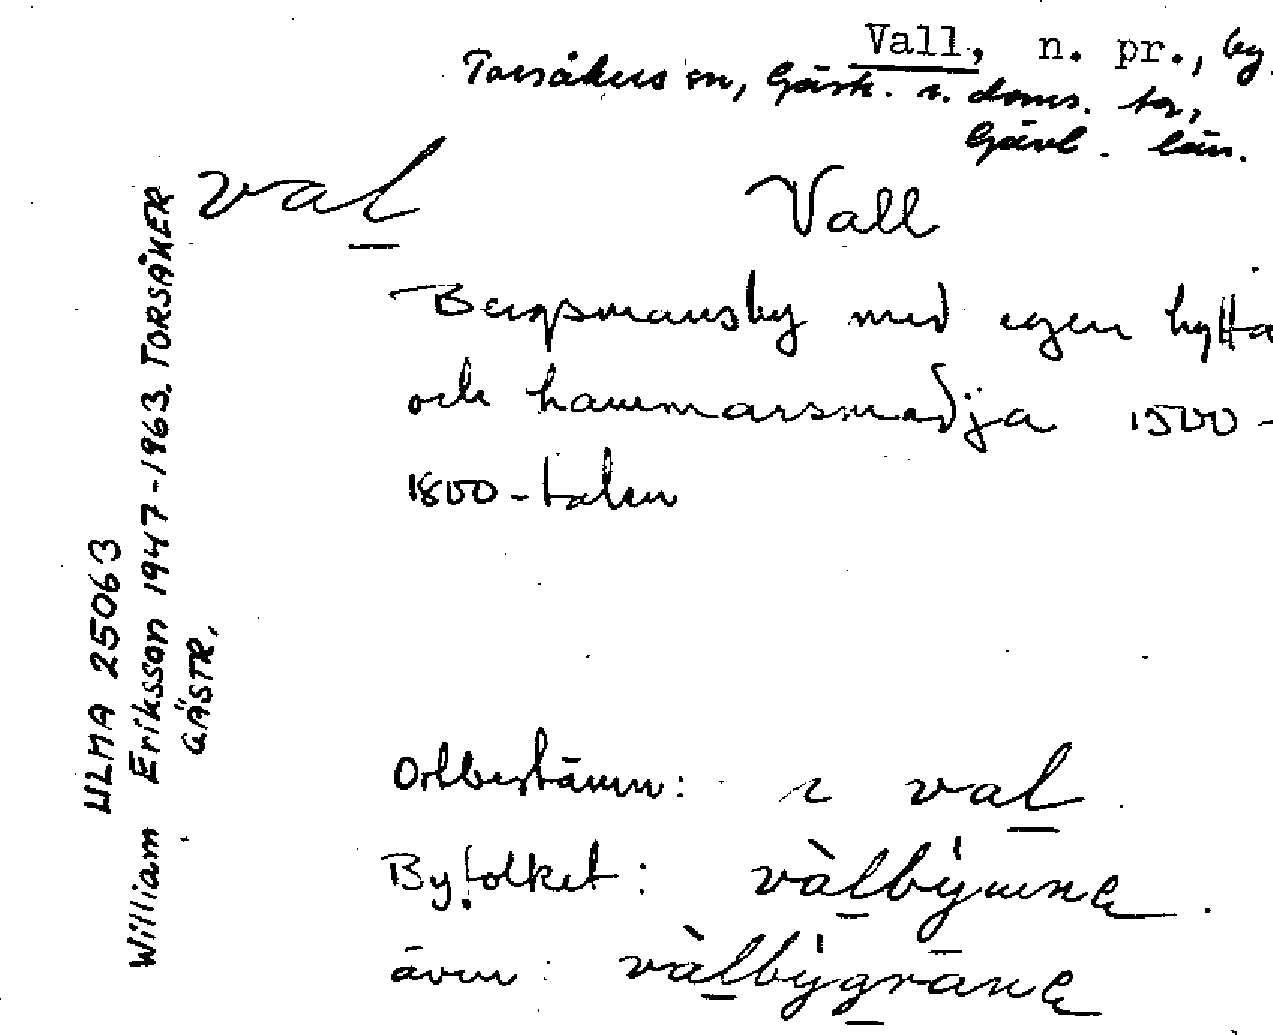 Vall, n. pr., by
Torsåkers sn, Gästr. v. doms. tg,
Gävl. län.
val Vall
Bergsmansby med egen hytta
och hammarsmedja 1500-
1800-talen
ULMA 25063
William Eriksson 1947-1963. TORSÅKER
GÄSTR.
Ortbestämn: i val
Byfolket:
även: